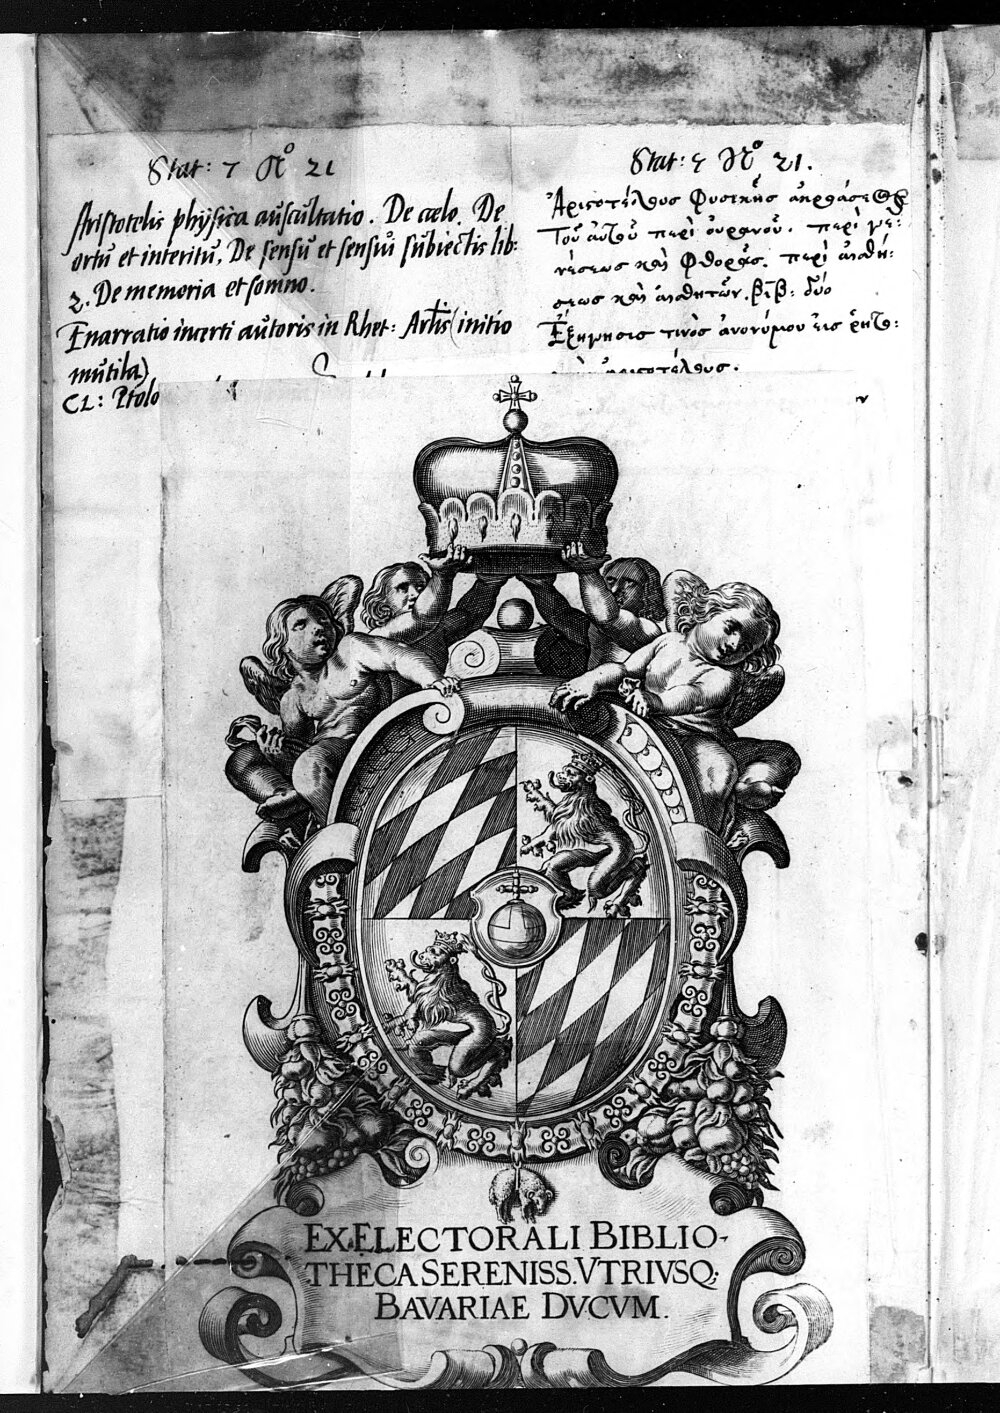 Stat: 7 No 21
Aristotelis physica auscultatio. De cœlo. De
ortu et interitu, De sensu et sensui subiectis lib:
2. De memoria et somno.
Enarratio incerti autoris in Rhet: Artis (initio
mutila)
CL: Ptolo
Stat: 7 No 21.
Ἀριστοτέλους φυσικῆς
Τοῦ αὐτοῦ περὶ οὐρανοῦ. περὶ γε:
νέσεως καὶ φθορᾶς. περὶ αἰσθή:
σεως καὶ αἰσθητῶν. βιβ: δύο
Ἐξήγησις τινὸς ἀνονύμου εἰς ῥητο:
ἀριστοτέλους.
EX ELECTORALI BIBLIO-
THECA SERENISS. VTRIVSQ;
BAVARIAE DVCVM.